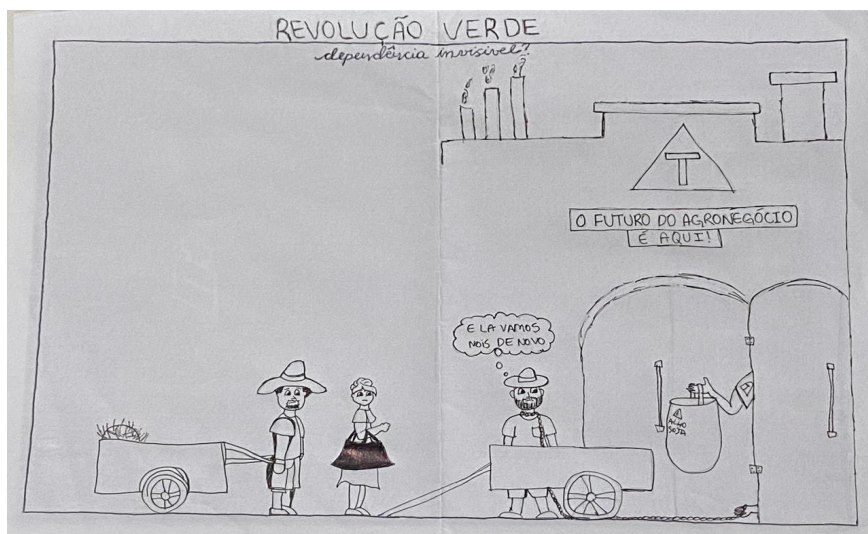 REVOLUÇÃO VERDE
dependência invisível?
T
O FUTURO DO AGRONEGÓCIO
É AQUI!
E LA VAMOS
NOIS DE NOVO
AGRO
SOJA